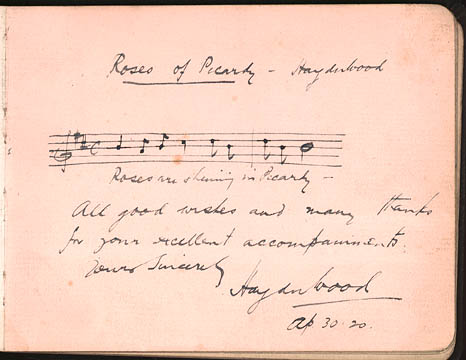 Roses of Picardy - Haydn Wood
Roses are shining in Picardy -
All good wishes and many thanks
for your excellent accompaniments.
Yours Sincerely
Haydn Wood
Ap 30. 20.